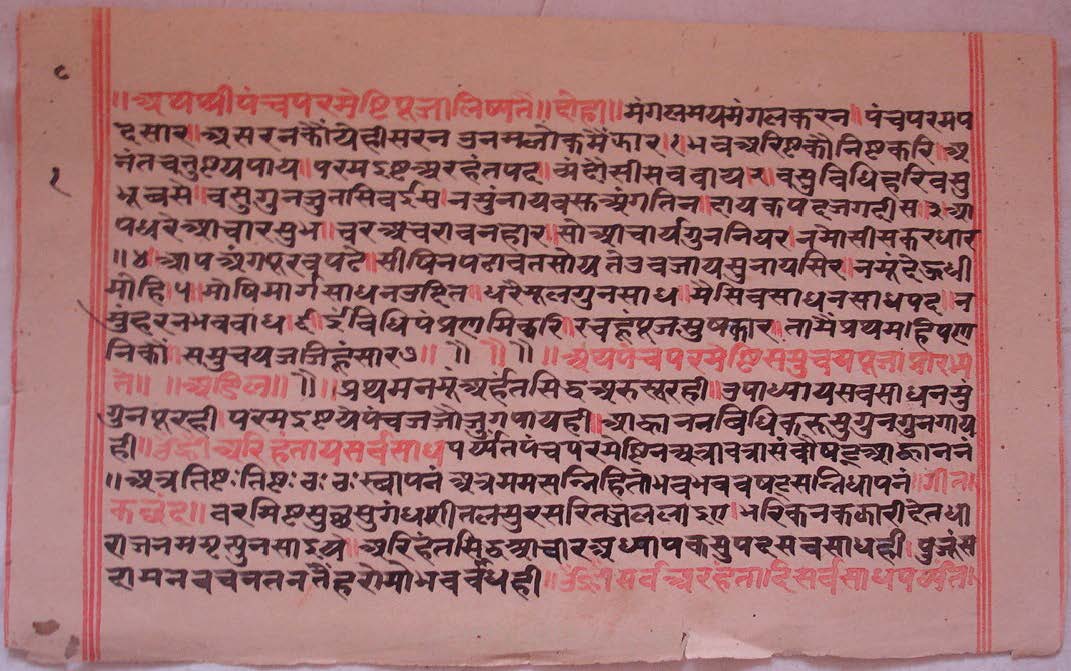 ॥अथश्रीपंचपरमेष्टिपूजालिष्यते॥दोहा॥मंगलमयमंगलकरन॥पंचपरमप
दसार॥असरनकौंयेहीसरन उनमलोकमैंझार॥१॥भवअरिष्टकौंनिष्टकरि॥अ
नंतचतुष्टयपाय॥परमइष्टअरहंतपद॥वंदौंसीसनवाय२वसुविधिहरिवसु
भूवसे॥वसुगुनजुतसिवईस॥नमुंनायवसुअंगतिन॥दायकपदजगदीस॥३॥आ
पधरेआचारसुभ॥चरअचरावनहार॥सोआचार्यगुननियर॥नमोंसीसकरधार
॥४॥आपअंगपूरवपढे॥सीषिनपढावतसोय तेउवजायसुनायसिर॥नमूंदेऊधी
मोहि॥५॥मोषिमार्गसाधनउदित॥धरैमूलगुनसाध॥मैसिवसाधनसाधपद॥न
मुंहरनभवबाध॥६॥ईविधिपंचप्रणमिकरि॥रचहूंपूजसुषकार॥तामैंप्रथम
निकौं॥समुचयजजिहूंसार७॥ ॥ ॥ ॥ ॥अथपंचपरमेष्टिसमुचयपूजाप्रारभ्य
ते॥ ॥अडिल॥ ॥प्रथमनमूंअर्हंतसिद्धअरुसूरही॥उपाध्यायसवसाधनमुं
गुनपूरही॥परमइष्टयेपंचजजौंजुगपायही॥आह्वाननविधिकरूसुगुनगुनगाय
ही॥ॐह्रीअरिहंतायसर्वसाधपर्य्यंतपंचपरमेष्टिनअत्रावतरासंवौषट्आह्वाननं
॥अत्रतिष्टःतिष्टःठःठःस्थापनं अत्रममसन्निहितोभवभववषटसन्निधापनं॥गीत
कछंद॥वरमिष्टसुछसुगंधशीतलसुरसरितजललाइए॥भरिकनकझारीदेतधा
राजनममृत्युनसाइये॥अरिहंतसिद्धआचारअध्यापकसुपदसवसाधही॥पुजंस
दामनवचनतनतैंहरोमोभवबंधही॥ॐह्रींसर्वअरहंता॥दिसर्वसाधपर्य्यंत॥
१